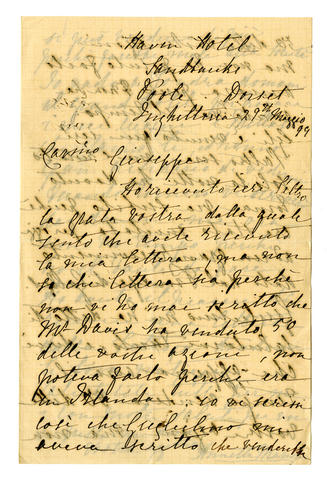 Haven Hotel
Sandbanks
Poole Dorset
Inghilterra 29th Maggio
99
Carino Giuseppe
Ho ricevuto ieri l'altro
la grata vostra dalla quale
sento che avete ricevuto
la mia lettera, ma non
so che lettera sia perchè
non vi ho mai scritto che
Mr Davis ha venduto 50
delle vostre azioni, non
poteva farlo perchè era
in Irlanda. io vi scrissi
così che Guglielmo mi
aveva scritto che